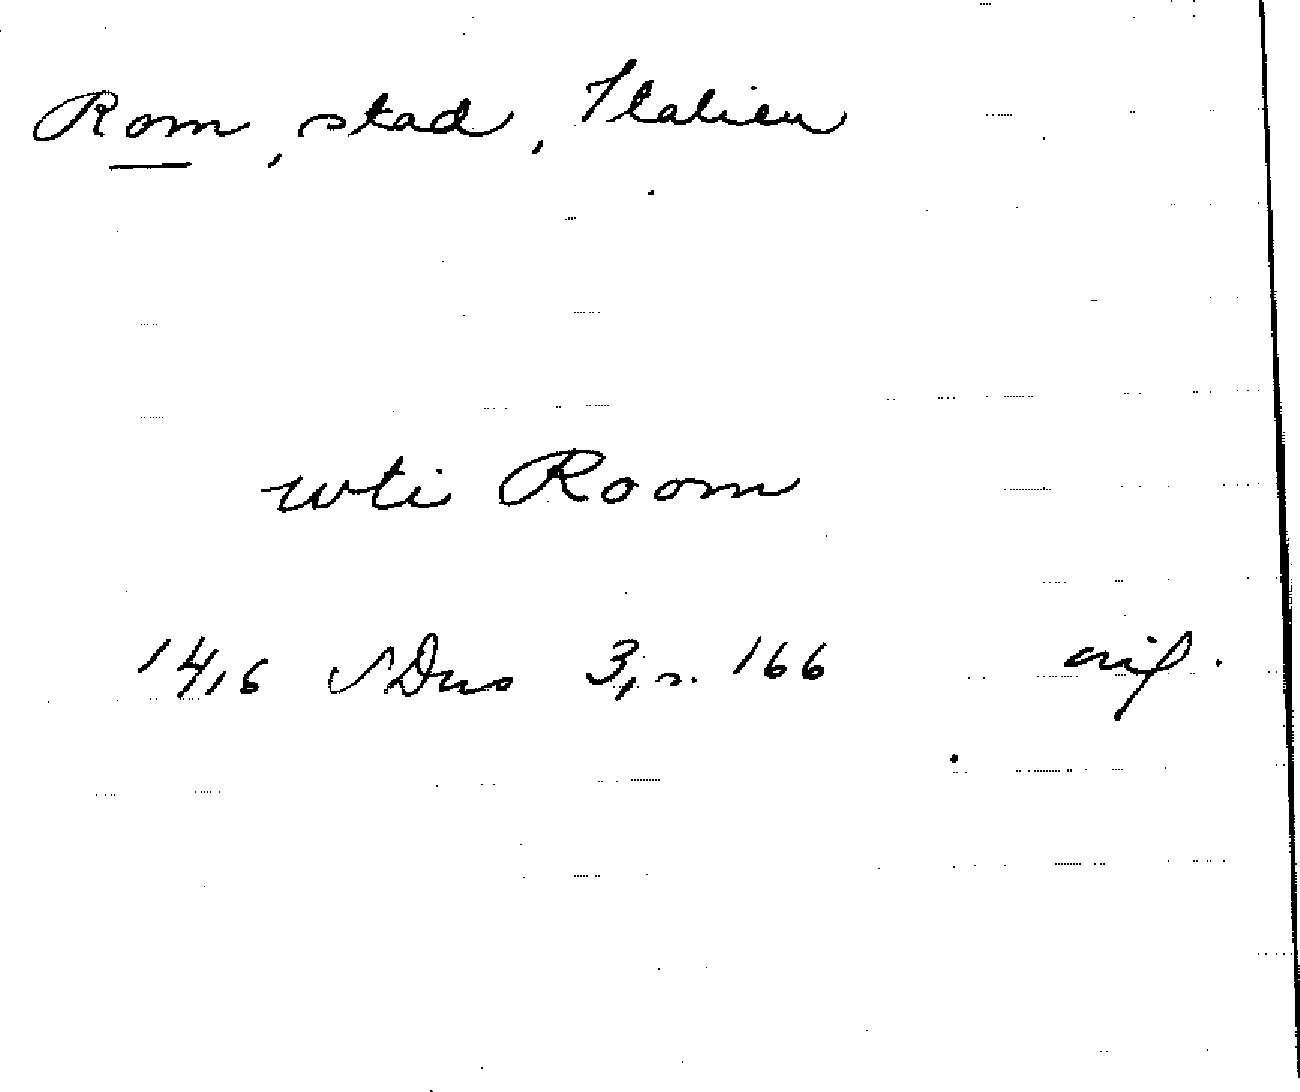 Rom, stad, Italien
wti Room
1416 SDns 3, s. 166 avs.